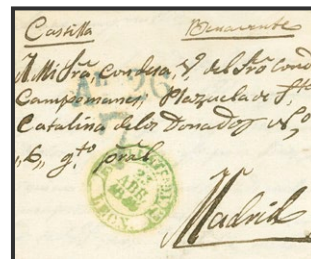 Castilla Benavente
A Mi Sra. Condesa, V. del Sr. Conde
Campomanes, Plazuela de Sta.
Catalina de los Donados No.
6, qto. pral.
Madrid
BENAVENTE
23
ABR.
LEON.